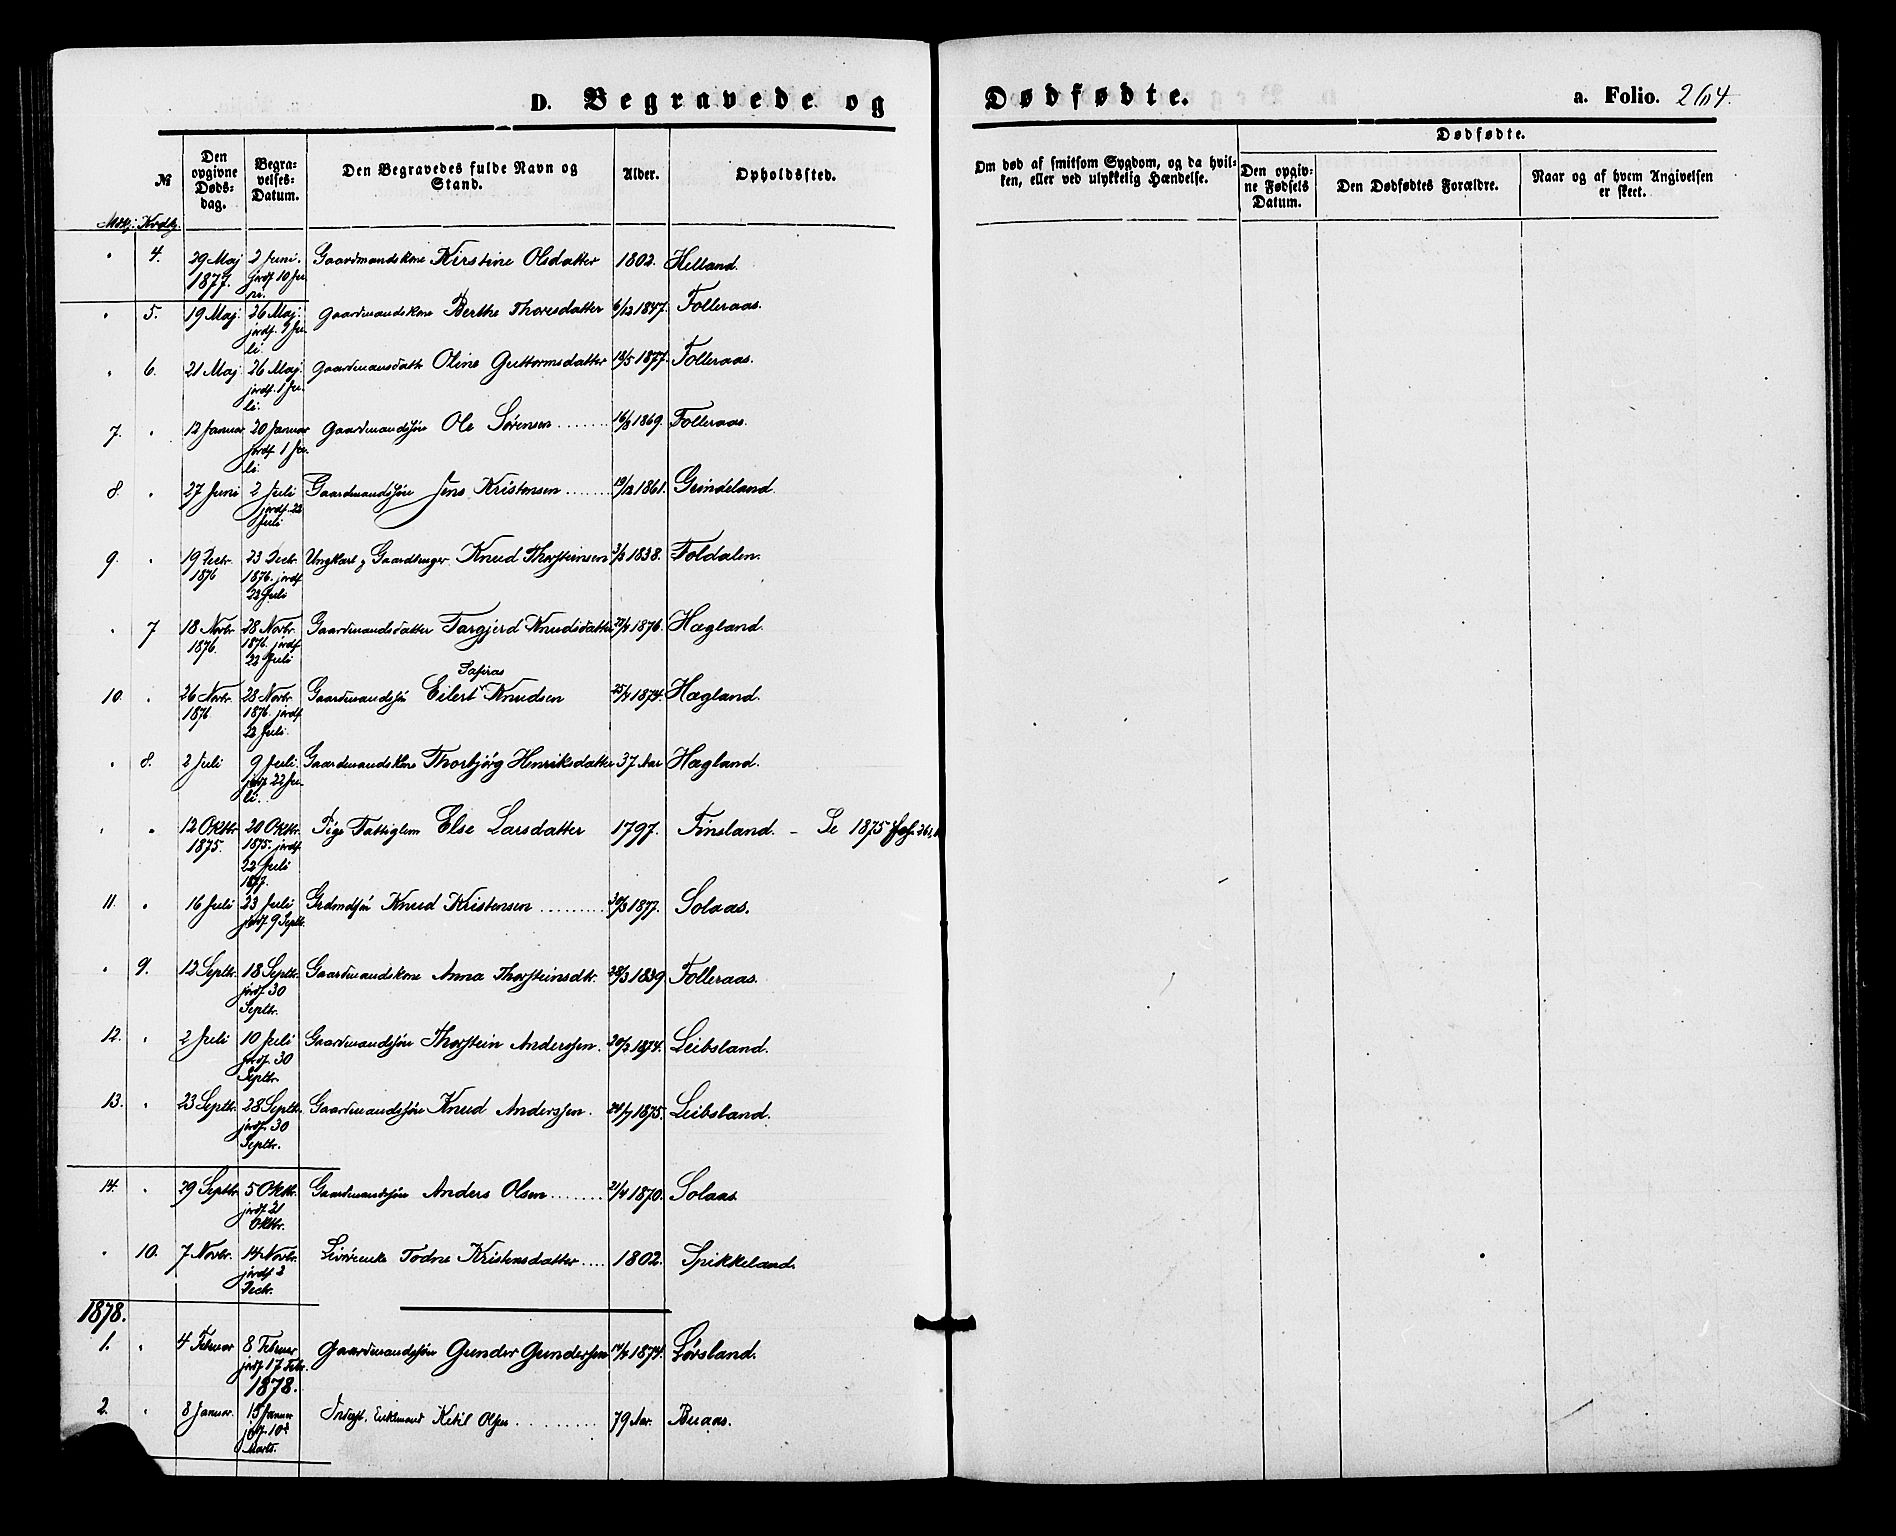 D. Begravede og Dødfødte.
a. Folio. 264.
№
Den opgivne Døds-dag.
Begra-velses-Datum.
Den Begravedes fulde Navn og Stand.
Alder.
Opholdssted.
Om død af smitsom Sygdom, og da hvil-ken, eller ved ulykkelig Hændelse.
Dødfødte.
Den opgiv-ne Fødsels Datum.
Den Dødfødtes Forældre.
Naar og af hvem Angivelsen er skeet.
Mdkj. Kvdkj.
" 4. 29 Maj 1877. 2 Juni. jordf 10 Juni. Gaardmandskone Kirstine Olsdatter 1802. Helland.
" 5. 19 Maj 26 Maj. jordf. 1 Juli. Gaardmandskone Berthe Thoresdatter 6/12 1847. Folleraas.
" 6. 21 Maj 26 Maj. jordf. 1 Juli. Gaardmansdattr Oline Guttormsdatter 13/5 1877. Folleraas.
7. " 12 Januar 20 Januar jordf 1 Juli. Gaardmandssøn Ole Sørensen 16/8 1869. Folleraas.
8. " 27 Juni 2 Juli jordf. 22 Juli Gaardmandssøn Jens Kristensen 19/12 1861. Grindeland.
9. " 19 Decbr. 1876 23 Decbr. 1876. jordf 22 Juli Ungkarl, Gaardbruger Knud Thorsteinsen 3/3 1838. Foldalen.
" 7 18 Novbr 1876. 28 Novbr. 1876. jordf 22 Juli Gaardmandsdatter Targjerd Knudsdatter 1876. Hægland.
10. " 26 Novbr 1876 28 Novbr. 1876 jordf 22 Juli. Gaardmandssøn Eilert Safiras Knudsen 1874. Hægland.
" 8. 2 Juli 9 Juli. jordf 22 Juli. Gaardmandskone Thorbjörg Henriksdatter 37 Aar Hægland.
" " 12 Oktbr 1875. 20 Oktbr. 1875. jordf 22 Juli 1877. Pige Fattiglem Else Larsdatter 1797. Finsland. - Se 1875
11. " 16 Juli 23 Juli jordf 9 Septbr. Grdmdssøn Knud Kristensen 1877. Solaas.
" 9. 12 Septbr. 18 Septbr. jordf 30 Septbr. Gaardmandskone Anna Thorsteinsdtr. 1839 Folleraas.
12. " 2 Juli 10 Juli jordf 30 Septbr. Gaardmandssøn Thorstein Anderssen. 1874. Leibsland.
13. " 23 Septbr. 28 Septbr. jordf. 30 Septbr. Gaardmandssøn Knud Anderssen. 1875. Leibsland.
14. " 29 Septbr 5 Oktbr. jordf 21 Oktbr. Gaardmandssøn Anders Olsen 21/4 1870. Solaas.
" 10. 7 Novbr. 14 Novbr. jordf 2 Decbr. Todne Kristensdatter 1802. Spikkeland.
1878.
1. " 4 Februar 8 Februar jordf 17 Febr. 1878. Gaardmandssøn Gunder Gundersen 1874. Lörsland.
2. " 8 Januar. 15 Januar jordf 10de Marts. Indgst. Enkemand Ketil Olsen 79 Aar. Buaas.